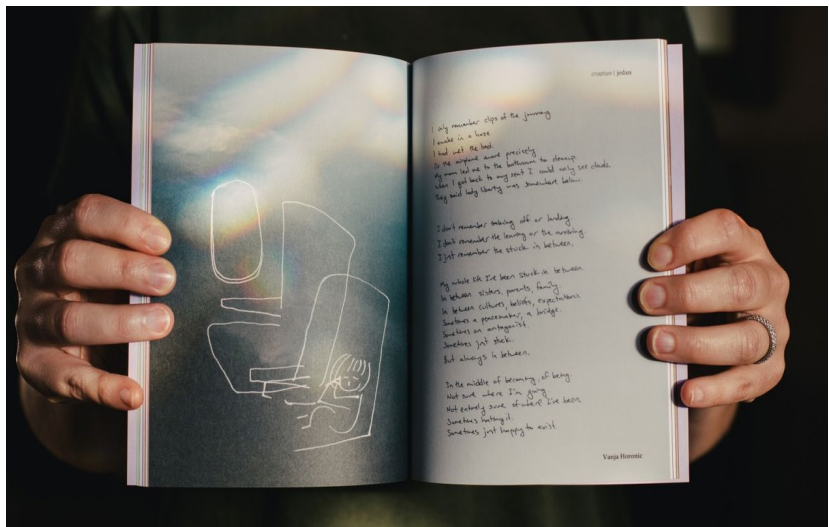 croatian | jedan
I only remember clips of the journey
I awake in a haze
I had wet the bed.
Or the airplane more precisely
My mom led me to the bathroom to cleanup.
When I got back to my seat I could only see clouds
They said lady liberty was somewhere below.
I don't remember taking off or landing.
I don't remember the leaving or the arriving.
I just remember the stuck in between.
My whole life I've been stuck in between
In between sisters, parents, family.
In between cultures, beliefs, expectations
Sometimes a peacemaker, a bridge.
Sometimes an antagonist.
Sometimes just stuck.
But always in between.
In the middle of becoming, of being.
Not sure where I'm going
Not entirely sure of where I've been
Sometimes hating it.
Sometimes just happy to exist.
Vanja Horonic